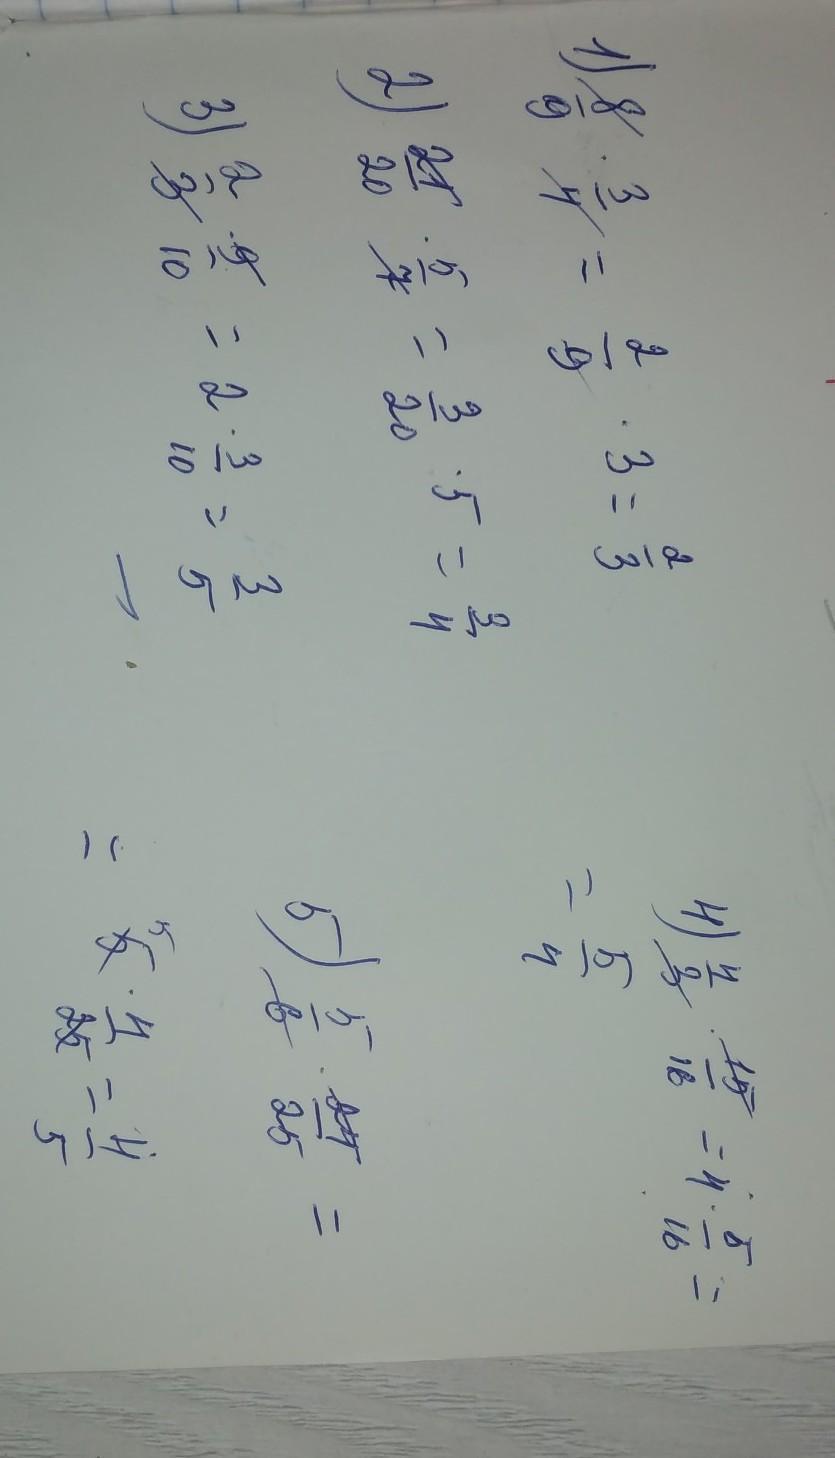 1) 8/9 · 3/4 = 2/9 · 3 = 2/3
2) 21/20 · 5/7 = 3/20 · 5 = 3/4
3) 2/3 · 9/10 = 2 · 3/10 = 3/5
4) 4/3 · 15/16 = 4 · 5/16 =
= 5/4
5) 5/6 · 24/25 =
= 5 · 4/25 = 4/5